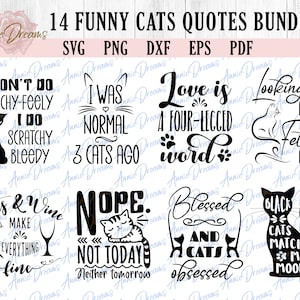 14 FUNNY CATS QUOTES BUND
Dreams
SVG PNG DXF EPS PDF
N'T DO
CHY-FEELY
I DO
SCRATCHY
BLEEDY
I WAS
NORMAL
3 CATS AGO
Love is
A FOUR-LEGGED
word
Looking
Fel
& Wine
MAKE
EVERYTHING
fine
NOPE.
NOT TODAY
Neither tomorrow
Blessed
AND
CATS
obsessed
BLACK
CATS
MATCH
MY
MOO